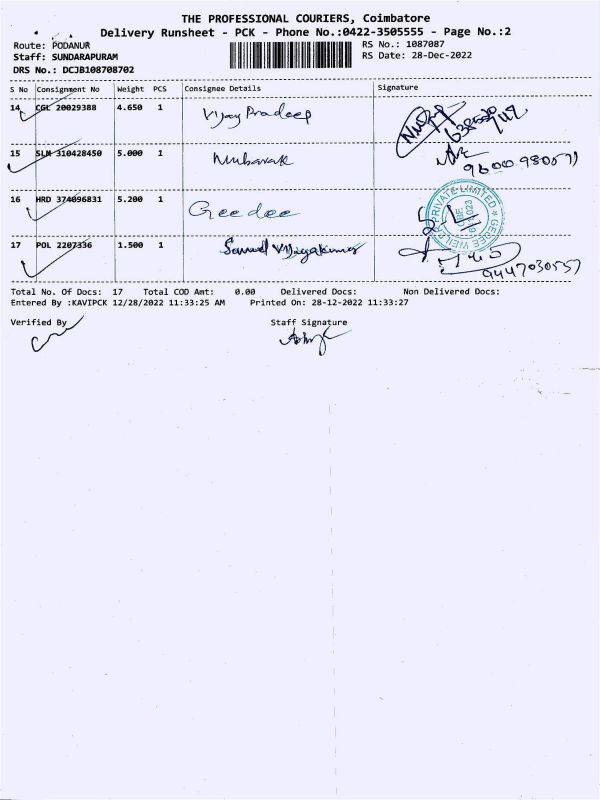 THE PROFESSIONAL COURIERS, Coimbatore
Delivery Runsheet - PCK - Phone No.:0422-3505555 - Page No.:2
Route: PODANUR
RS No.: 1087087
Staff: SUNDARAPURAM
RS Date: 28-Dec-2022
DRS No.: DCJB108708702
S No Consignment No Weight PCS Consignee Details Signature
14 CGL 20029388 4.650 1 Vijay Pradeep
15 SLM 310428450 5.000 1 Mubarak
9600 980571
16 HRD 374096831 5.200 1 Geedee
PRIVATE LIMITED ★ GEDEE WEILER
17 POL 2207336 1.500 1 Samuel Vijayakumar
9447030557
Total No. Of Docs: 17 Total COD Amt: 0.00 Delivered Docs: Non Delivered Docs:
Entered By :KAVIPCK 12/28/2022 11:33:25 AM Printed On: 28-12-2022 11:33:27
Verified By Staff Signature